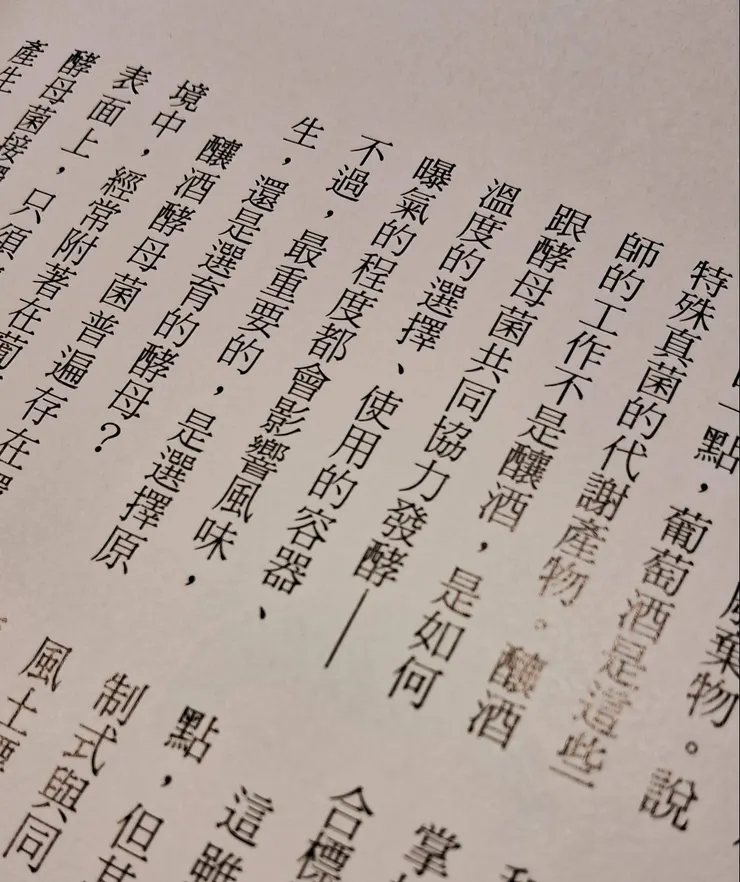 棄物。說
一點，葡萄酒是這些
特殊真菌的代謝產物。釀酒
師的工作不是釀酒，是如何
跟酵母菌共同協力發酵——
溫度的選擇、使用的容器、
曝氣的程度都會影響風味，
不過，最重要的，是選擇原
生，還是選育的酵母？
釀酒酵母菌普遍存在環
境中，經常附著在葡
表面上，只須
酵母菌接
產生
掌
合標
這雖
點，但其
制式與同
風土